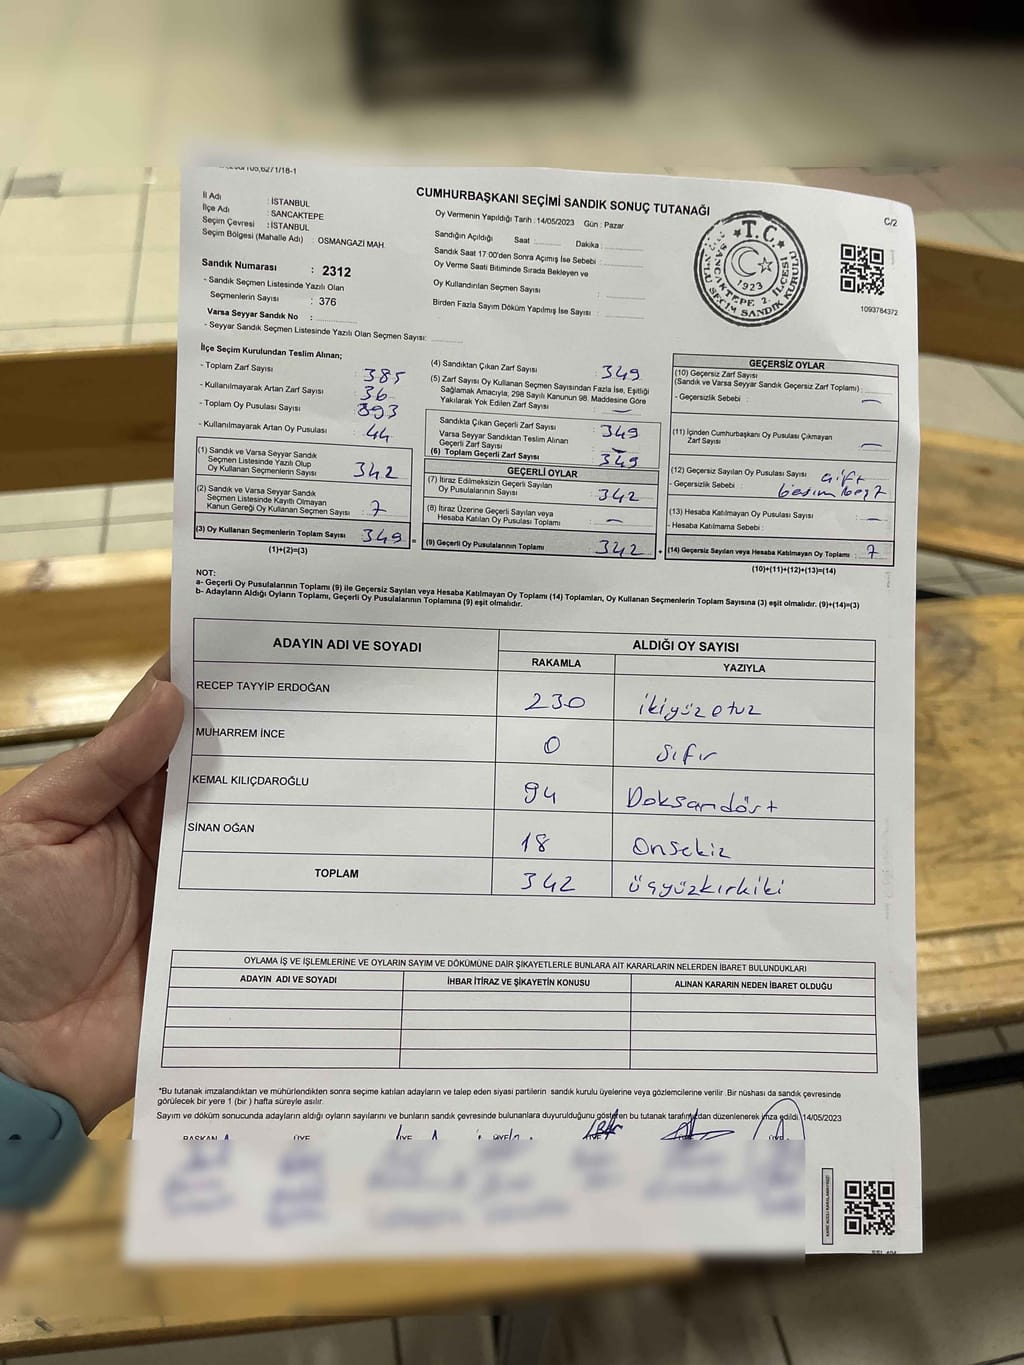 /105,6271/18-1
CUMHURBAŞKANI SEÇİMİ SANDIK SONUÇ TUTANAĞI
C/2
İl Adı : İSTANBUL
İlçe Adı : SANCAKTEPE
Seçim Çevresi : İSTANBUL
Seçim Bölgesi (Mahalle Adı) : OSMANGAZİ MAH.
Sandık Numarası : 2312
- Sandık Seçmen Listesinde Yazılı Olan
Seçmenlerin Sayısı : 376
Varsa Seyyar Sandık No :
- Seyyar Sandık Seçmen Listesinde Yazılı Olan Seçmen Sayısı:
Oy Vermenin Yapıldığı Tarih : 14/05/2023 Gün : Pazar
Sandığın Açıldığı Saat Dakika
Sandık Saat 17:00'den Sonra Açımış İse Sebebi
Oy Verme Saati Bitiminde Sırada Bekleyen ve
Oy Kullandırılan Seçmen Sayısı :
Birden Fazla Sayım Döküm Yapılmış İse Sayısı :
T.C.
SANCAKTEPE 2. İLÇESİ
SEÇİM SANDIK KURULU
1923
1093784372
İlçe Seçim Kurulundan Teslim Alınan;
- Toplam Zarf Sayısı : 385
- Kullanılmayarak Artan Zarf Sayısı : 36
- Toplam Oy Pusulası Sayısı : 393
- Kullanılmayarak Artan Oy Pusulası : 44
(1) Sandık ve Varsa Seyyar Sandık
Seçmen Listesinde Yazılı Olup
Oy Kullanan Seçmenlerin Sayısı : 342
(2) Sandık ve Varsa Seyyar Sandık
Seçmen Listesinde Kayıtlı Olmayan
Kanun Gereği Oy Kullanan Seçmen Sayısı : 7
(3) Oy Kullanan Seçmenlerin Toplam Sayısı : 349
(1)+(2)=(3)
(4) Sandıktan Çıkan Zarf Sayısı : 349
(5) Zarf Sayısı Oy Kullanan Seçmen Sayısından Fazla İse, Eşitliği
Sağlamak Amacıyla, 298 Sayılı Kanunun 98. Maddesine Göre
Yakılarak Yok Edilen Zarf Sayısı : —
Sandıkta Çıkan Geçerli Zarf Sayısı : 349
Varsa Seyyar Sandıktan Teslim Alınan
Geçerli Zarf Sayısı : —
(6) Toplam Geçerli Zarf Sayısı : 349
GEÇERLİ OYLAR
(7) İtiraz Edilmeksizin Geçerli Sayılan
Oy Pusulalarının Sayısı : 342
(8) İtiraz Üzerine Geçerli Sayılan veya
Hesaba Katılan Oy Pusulası Toplamı : —
= (9) Geçerli Oy Pusulalarının Toplamı : 342
GEÇERSİZ OYLAR
(10) Geçersiz Zarf Sayısı
(Sandık ve Varsa Seyyar Sandık Geçersiz Zarf Toplamı) :
- Geçersizlik Sebebi : —
(11) İçinden Cumhurbaşkanı Oy Pusulası Çıkmayan
Zarf Sayısı : —
(12) Geçersiz Sayılan Oy Pusulası Sayısı : çift
- Geçersizlik Sebebi : 7
(13) Hesaba Katılmayan Oy Pusulası Sayısı : —
- Hesaba Katılmama Sebebi :
+ (14) Geçersiz Sayılan veya Hesaba Katılmayan Oy Toplamı : 7
(10)+(11)+(12)+(13)=(14)
NOT:
a- Geçerli Oy Pusulalarının Toplamı (9) ile Geçersiz Sayılan veya Hesaba Katılmayan Oy Toplamı (14) Toplamları, Oy Kullanan Seçmenlerin Toplam Sayısına (3) eşit olmalıdır. (9)+(14)=(3)
b- Adayların Aldığı Oyların Toplamı, Geçerli Oy Pusulalarının Toplamına (9) eşit olmalıdır.
ADAYIN ADI VE SOYADI ALDIĞI OY SAYISI
RAKAMLA YAZIYLA
RECEP TAYYİP ERDOĞAN 230 ikiyüz otuz
MUHARREM İNCE 0 sıfır
KEMAL KILIÇDAROĞLU 94 Doksandört
SİNAN OĞAN 18 Onsekiz
TOPLAM 342 üçyüzkırkiki
OYLAMA İŞ VE İŞLEMLERİNE VE OYLARIN SAYIM VE DÖKÜMÜNE DAİR ŞİKAYETLERLE BUNLARA AİT KARARLARIN NELERDEN İBARET BULUNDUKLARI
ADAYIN ADI VE SOYADI İHBAR İTİRAZ VE ŞİKAYETİN KONUSU ALINAN KARARIN NEDEN İBARET OLDUĞU
*Bu tutanak imzalandıktan ve mühürlendikten sonra seçime katılan adayların ve talep eden siyasi partilerin sandık kurulu üyelerine veya gözlemcilerine verilir. Bir nüshası da sandık çevresinde
görülecek bir yere 1 (bir ) hafta süreyle asılır.
Sayım ve döküm sonucunda adayların aldığı oyların sayılarını ve bunların sandık çevresinde bulunanlara duyurulduğunu gösteren bu tutanak tarafımızdan düzenlenerek imza edildi. 14/05/2023
BAŞKAN ÜYE ÜYE ÜYE ÜYE ÜYE ÜYE